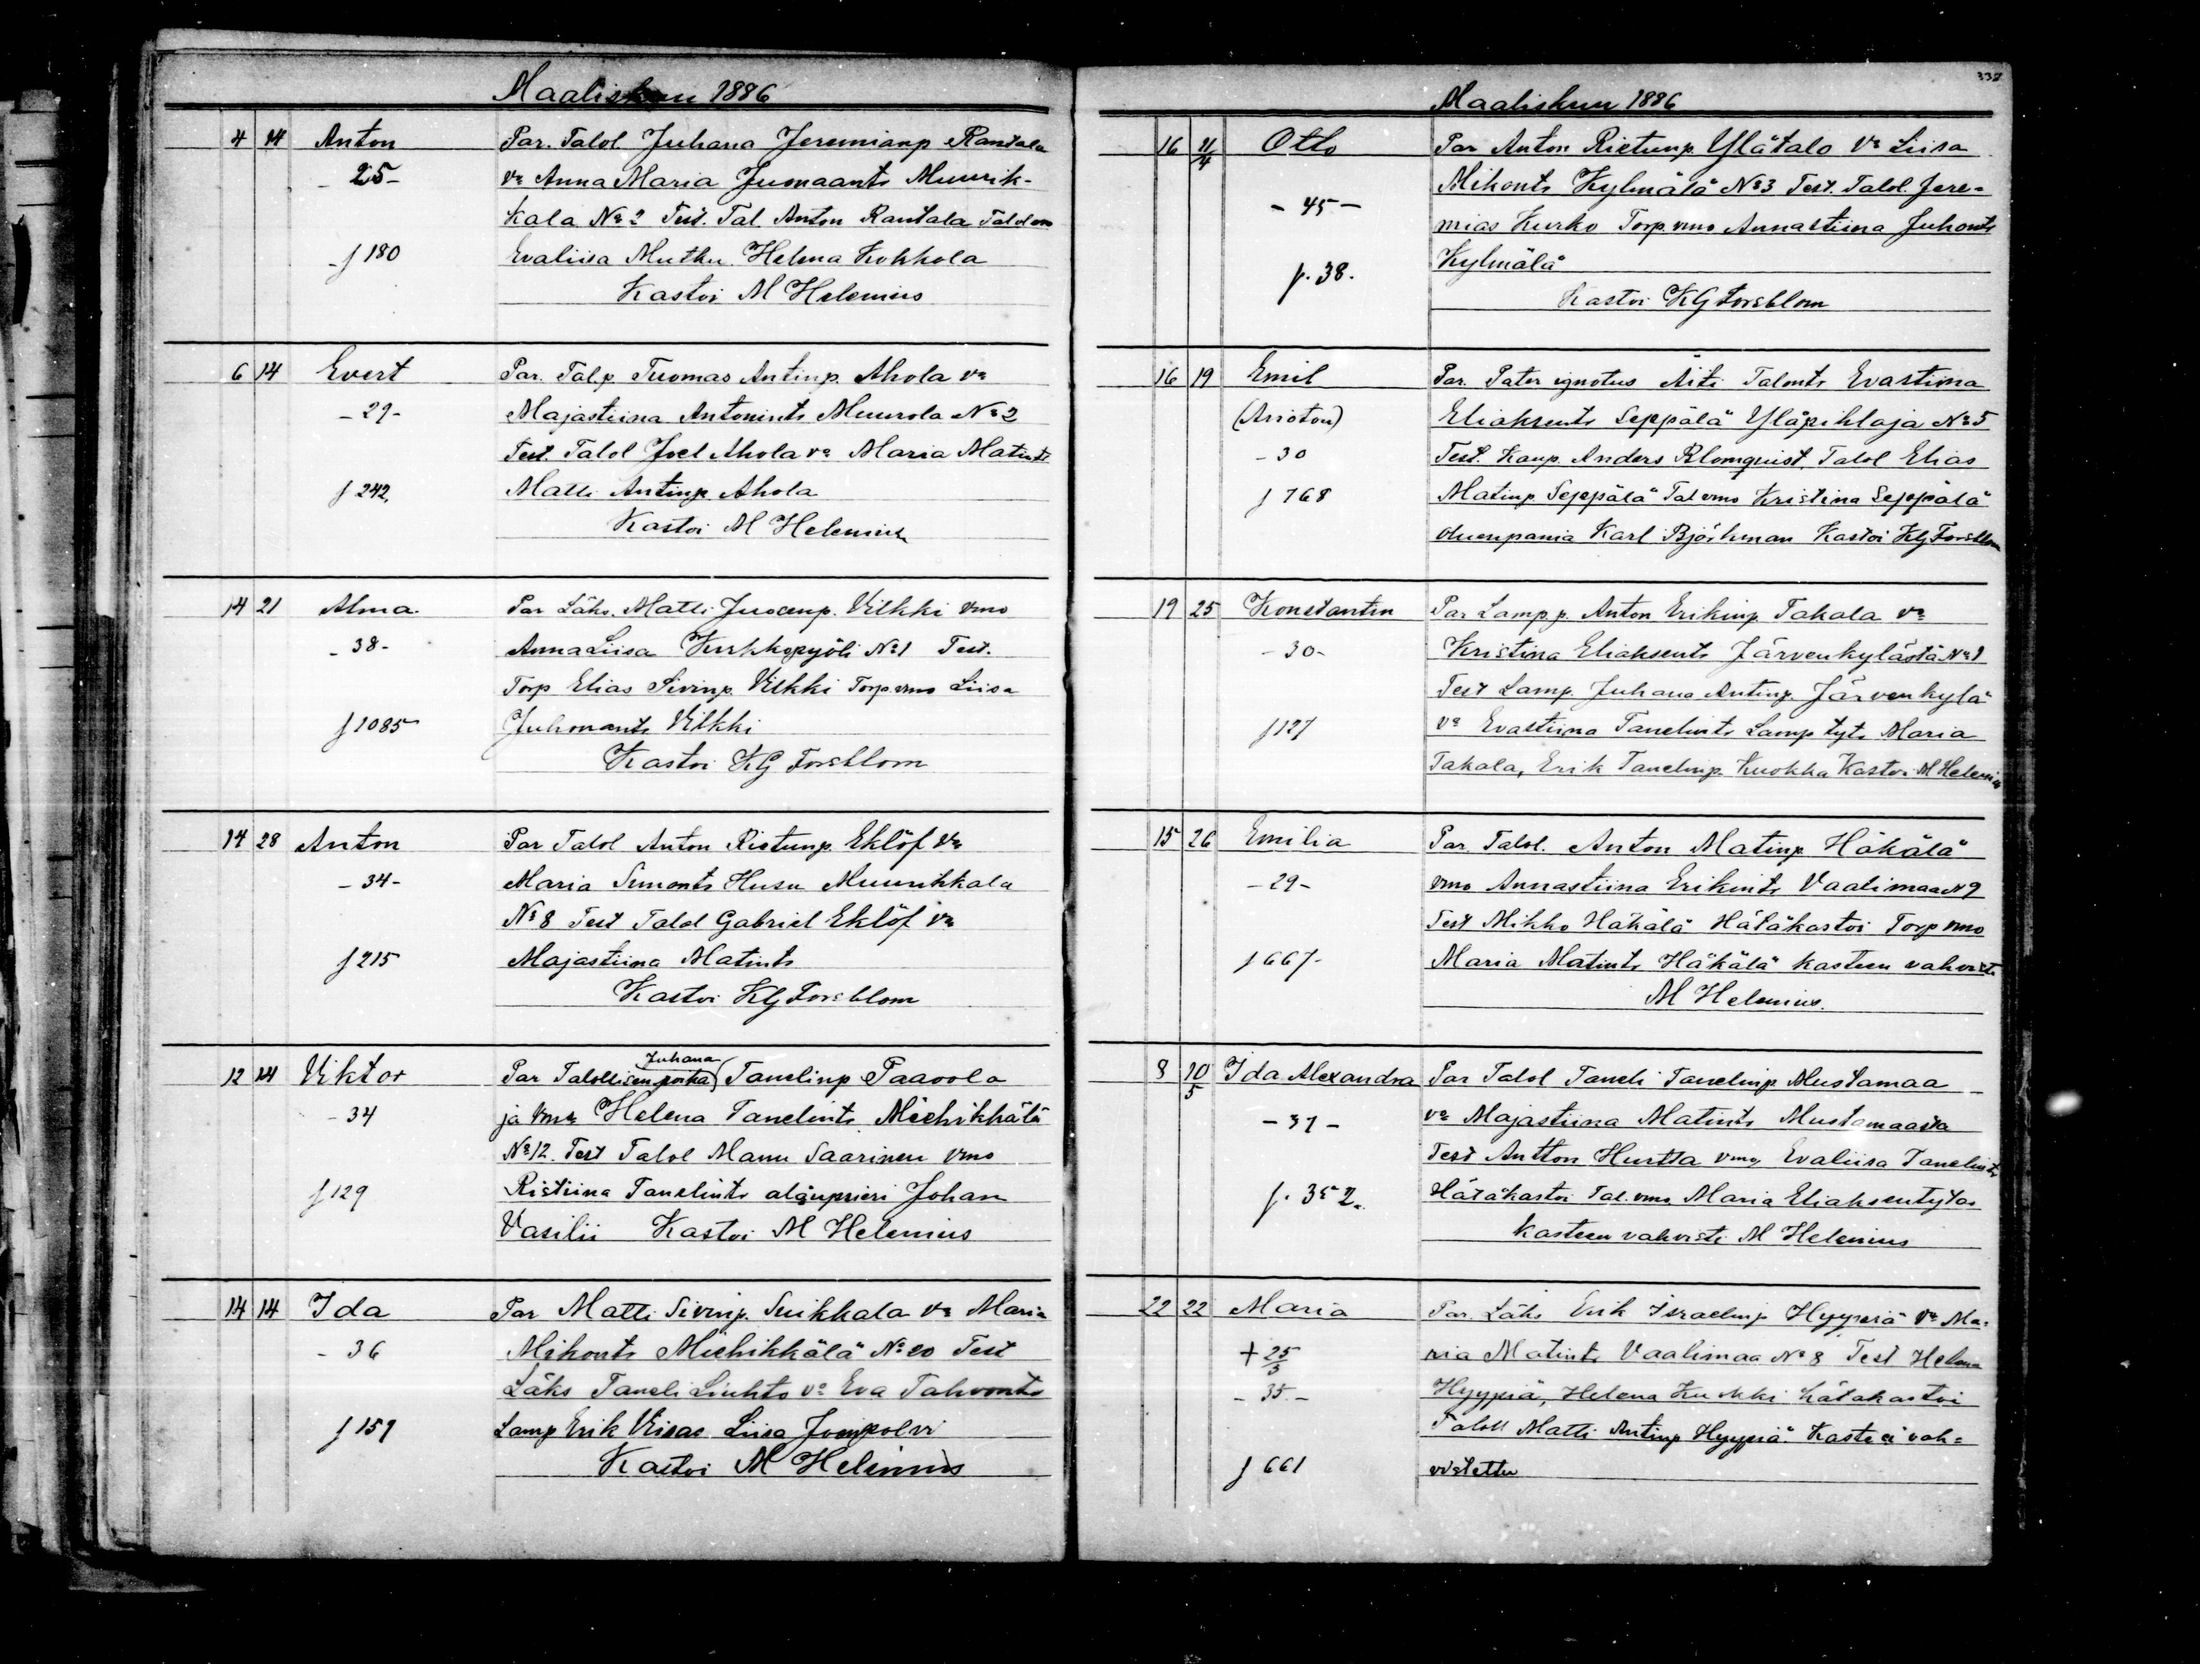 Maaliskuu 1886
4 14 Anton Par. Talol Juhana Jeremianp Rantala
- 25 - va Anna Maria Juonaants Muurik-
kala No 2 Test. Tal. Anton Rantala Talol vmo
f 180 Evaliisa Mutku Helena Kokkola
Kastoi M Helenius
6 14 Evert Par. Tal.p. Tuomas Antinp. Ahola va
- 29 - Majastiina Antonints Muurola No 2
Test. Talol Joel Ahola va Maria Matints
f 242. Matti Antinp Ahola
Kastoi M Helenius
14 21 Alma Par Läks. Matti Juocenp. Vilkki vmo
- 38 - AnnaLiisa Kirkkopyöli No 1 Test.
Torp Elias Sivinp. Vilkki Torp.vmo Liisa
f 1085 Juhonants Vilkki
Kastoi KG Forsblom
14 28 Anton Par Talol Anton Ristunp. Eklöf va
- 34 - Maria Simonts Husu Muurikkala
No 8 Test Talol Gabriel Eklöf va
f 215 Majastiina Matints
Kastoi KG Forsblom
Juhana
12 14 Viktor Par Talollisen poika Tanelinp Paavola
- 34 ja vmo Helena Tanelints Miehikkälä
No 12. Test Talol Manu Saarinen vmo
f 129 Ristiina Tanelints aliupsieri Johan
Vasilii Kastoi M Helenius
14 14 Ida Par Matti Sivinp. Suikkala va Maria
- 36 Mikonts Miehikkälä No 20 Test
Läks Taneli Liuhto va Eva Tahvonts
f 157 Lamp Erik Viisas Liisa Jompolvi
Kastoi M Helenius
337
Maaliskuu 1886
16 11/4 Otto Par Anton Ristunp. Ylätalo va Liisa
- 45 - Mikonts Kylmälä No 3 Test. Talol. Jere=
mias Kurko Torp. vmo Annastiina Juhonts
f. 38. Kylmälä
Kastoi KG Forsblom
16 19 Emil Par. Pater ignotus Äiti Talonts Evastiina
(Avioton) Eliaksents Seppälä Yläpihlaja No 5
- 30 Test. Kaup. Anders Blomquist, Talol Elias
f 768 Matinp. Seppälä Tal vmo Kristina Seppälä
oluenpania Karl Björkman Kastoi KG Forsblom
19 25 Konstantin Par Lamp.p. Anton Erikinp. Takala va
- 30 - Kristina Eliaksents Järvenkylästä No 1
Test Lamp. Juhana Antinp. Järvenkylä
f 127 va Evastiina Tanelints Lamp tyt. Maria
Takala, Erik Tanelinp. Kuokka Kastoi M Helenius
15 26 Emilia Par. Talol. Anton Matinp. Häkälä
- 29 - vmo Annastiina Erikints Vaalimaa No 9
Test Mikko Häkälä Hätäkastoi Torp vmo
f 667 - Maria Matints Häkälä kasteen vahvisti
M Helenius.
8 10/5 Ida Alexandra Par Talol Taneli Tanelinp. Mustamaa
- 31 - va Majastiina Matints Mustamaasta
Test Antton Hurtta vmo Evaliisa Tanelints
f. 352. Hätäkastoi Tal. vmo Maria Eliaksentytär
Kasteen vahvisti M Helenius
22 22 Maria Par. Läks Erik Israelinp Hyypiä va Ma=
+ 25/3 ria Matints Vaalimaa No 8 Test Helena
- 35 - Hyypiä, Helena Kukki hätäkastoi
Talol Matti Antinp Hyypiä. Kaste ei vah=
f 661 vistettu